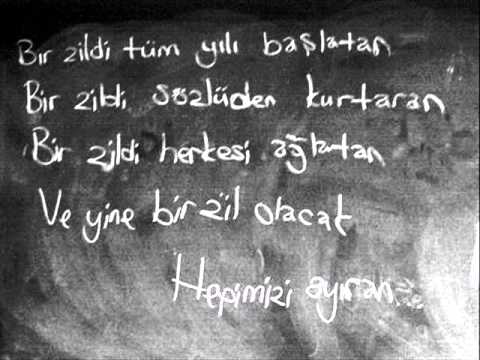 Bir zildi tüm yılı başlatan
Bir zildi sözlüden kurtaran
Bir zildi herkesi ağlatan
Ve yine bir zil olacak
Hepimizi ayıran...